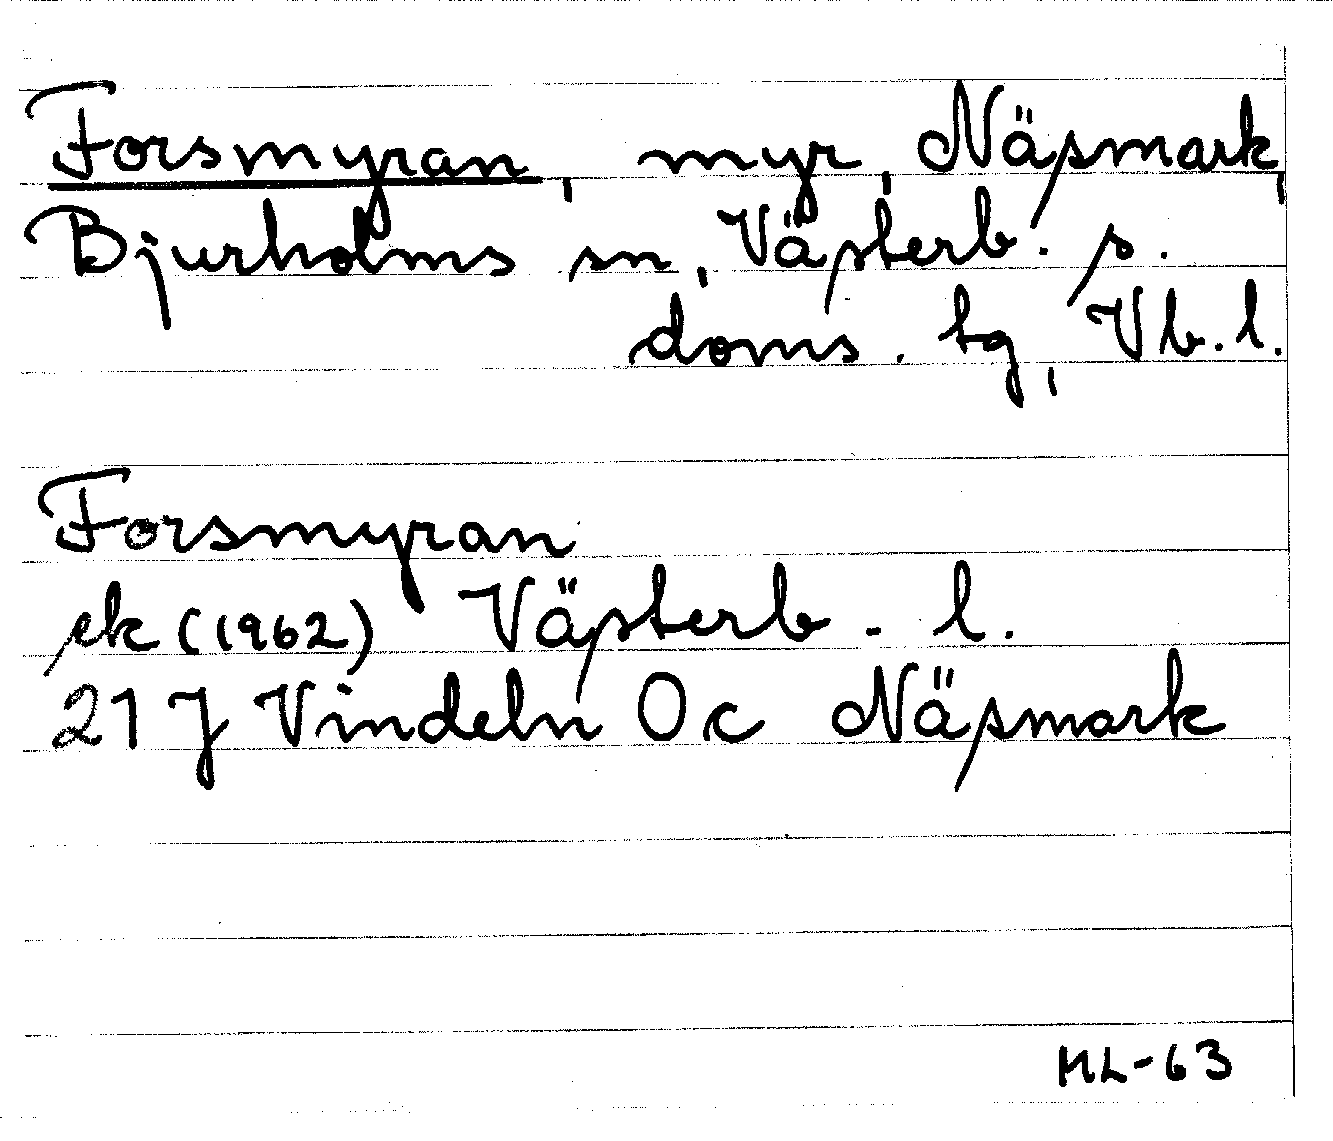 Forsmyran, myr, Näsmark,
Bjurholms sn, Västerb. s.
doms. tg, Vb. l.
Forsmyran
ek (1962) Västerb. l.
21 J Vindeln Oc Näsmark
HL-63